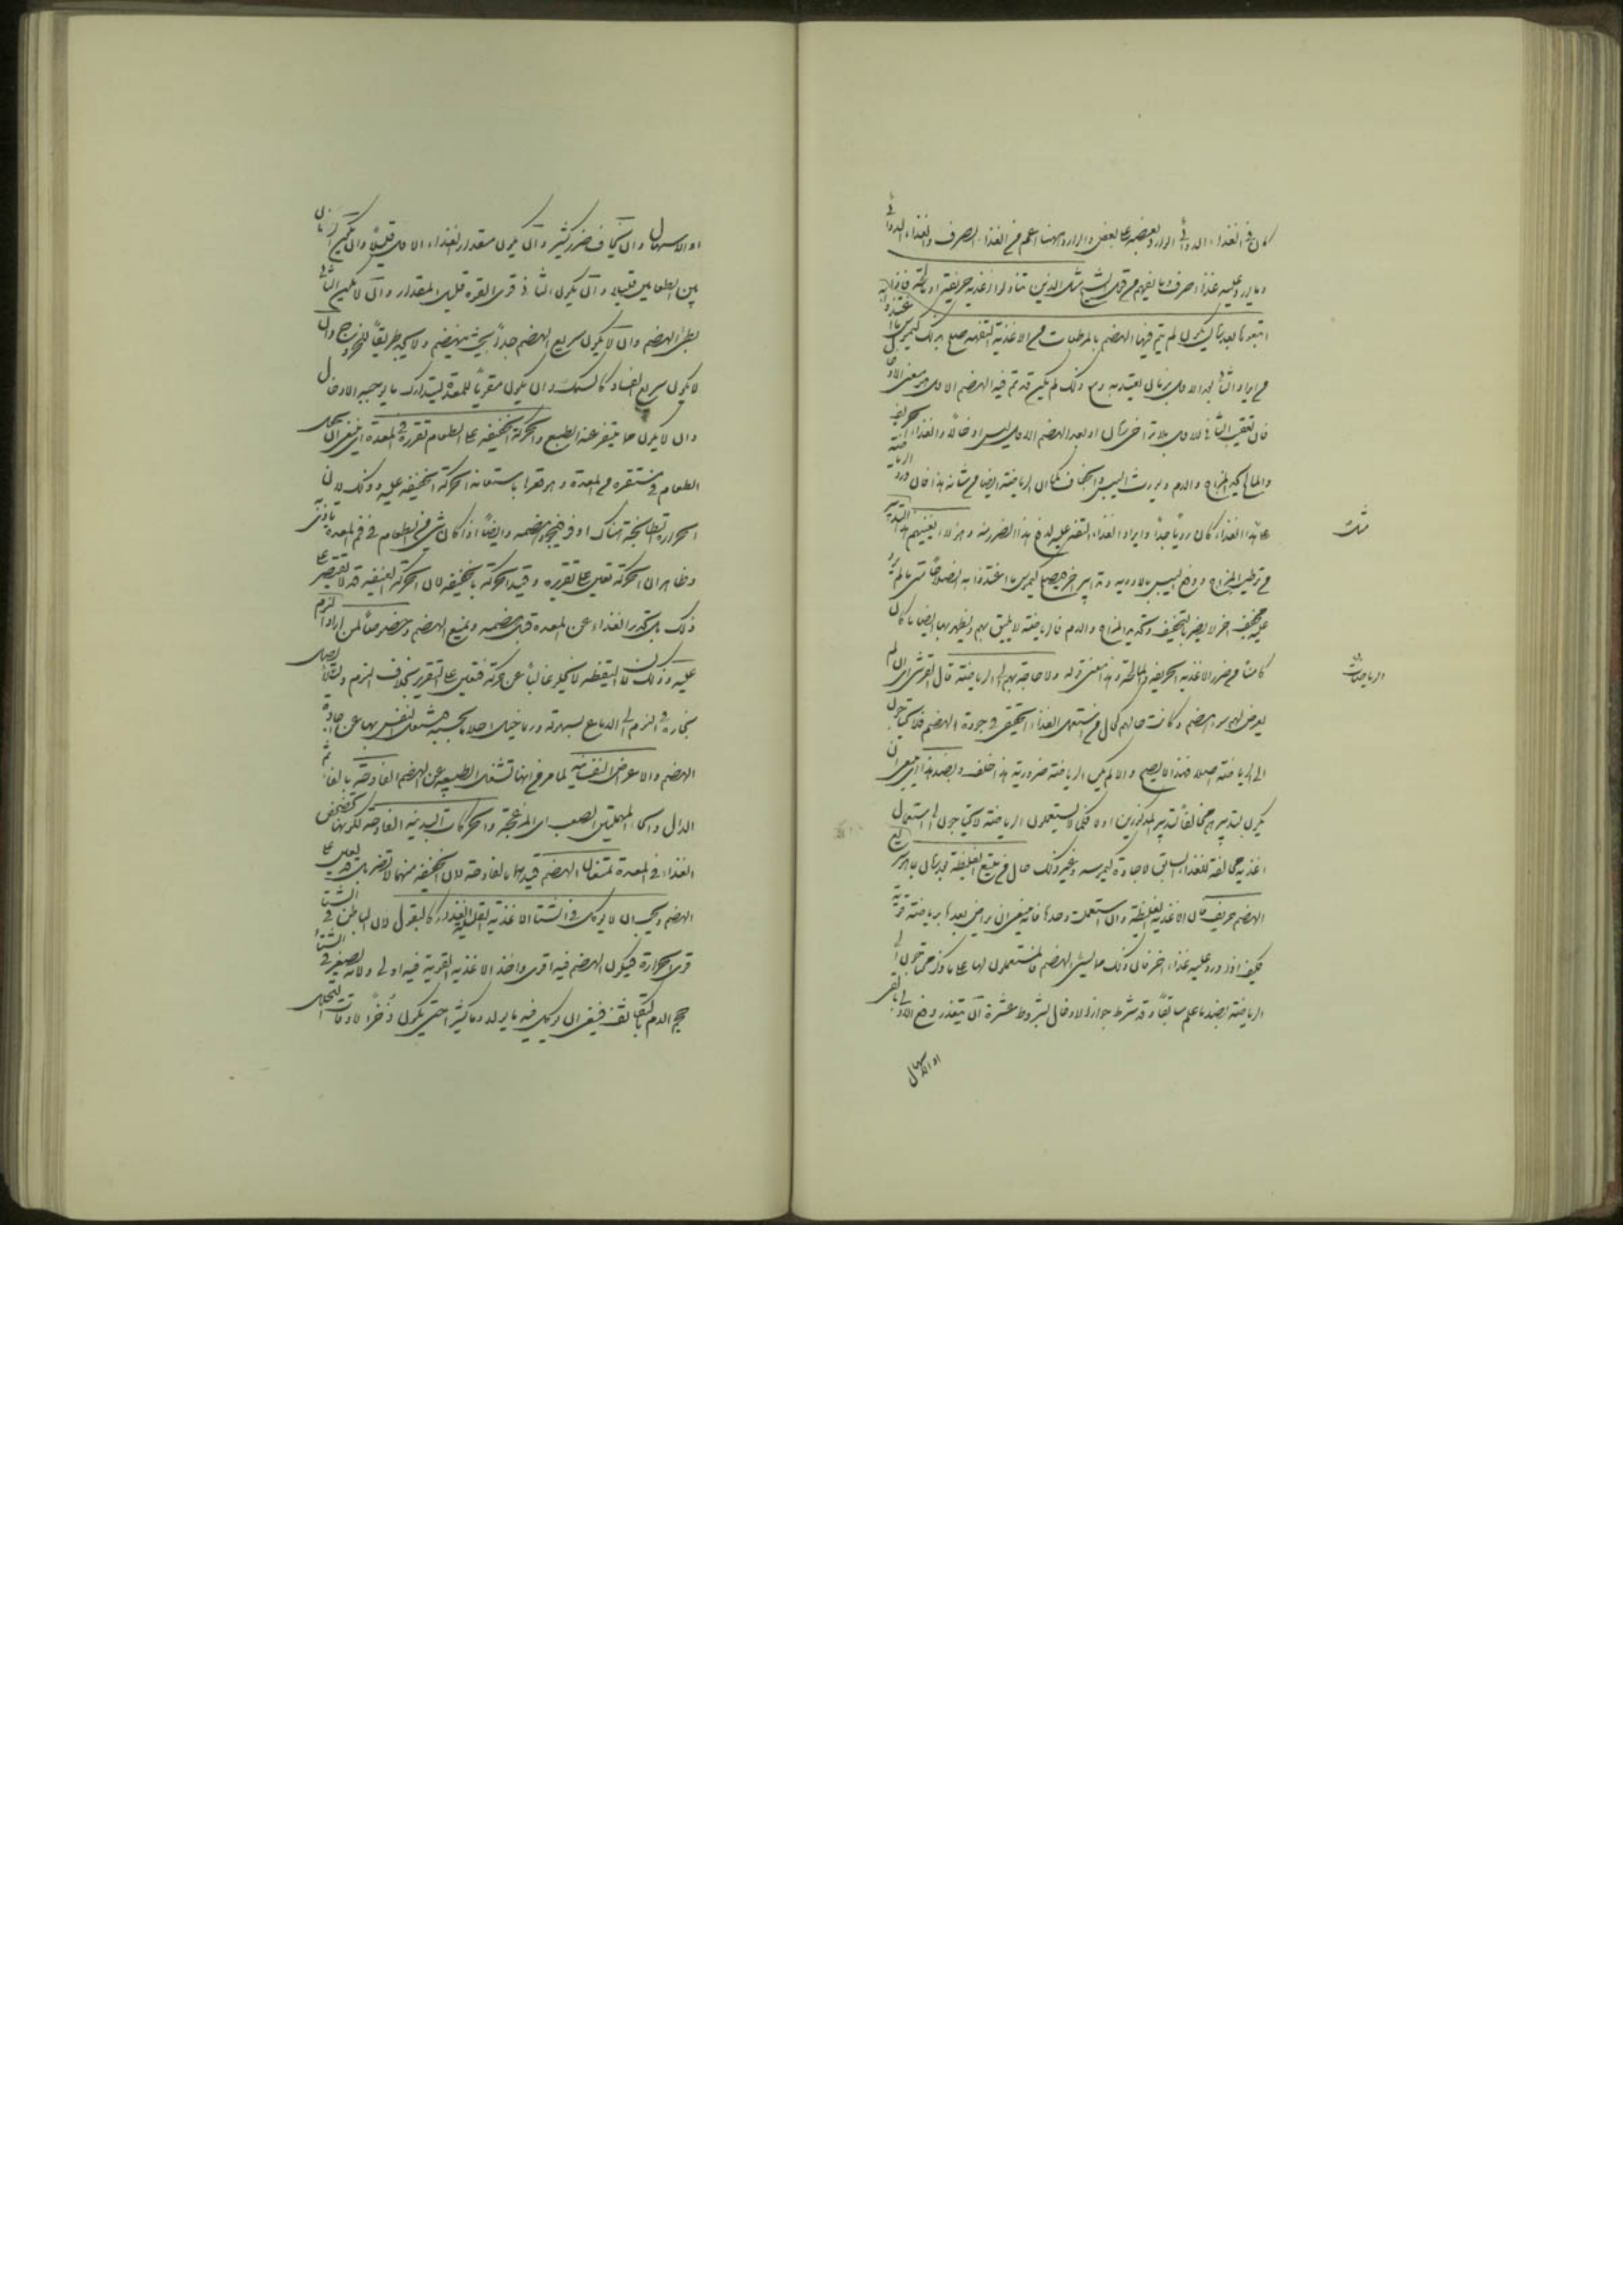 كان في الغذاء الدوائي الوارد بعضه على بعض والوارد ههنا اعم من الغذاء الصرف والغذاء الدوائي
وما يورد عليه غذاء صرف وما يفهم من قول الشيخ مثل الذين تناولوا اغذية حريفة او مالحة فاذا
اتبعوها بعد زمان يكون لم يتم فيها الهضم بالمرطبات من الاغذية التفهة صلح بذلك كيموس ما اغتذوا به
من ايراد الثاني بعد الاول بزمان يعتد به ومع ذلك لم يكن قد تم فيه الهضم الاول هو معنى الادخال
فان تعقيب الثاني للاول بلا تراخي زمان او بعد الهضم الاول ليس ادخالا والغذاء الحريف
والمالح المزاج والدم ويورث اليبس والجفاف كما ان الرياضة ايضا من شأنه هذا فان ورد الرياضة
على هذا الغذاء كان رديا جدا وايراد الغذاء التفه عليه لدفع هذا الضرر منه وهؤلاء يغنيهم هذا التدبير
مثل
في ترطيب المزاج ودفع اليبس بلا ادوية وتدابير اخر هي تصلح كيموس ما اغتذوا به اصلاحا متى ما لم يرد
عليه مجفف اخر لا يضر بالتجفيف وتكدير المزاج والدم فالرياضة لا يليق بهم ويظهر بها ايضا ما كان
كامنا من ضرر الاغذية الحريفة والمالحة وهذا معنى قوله ولا حاجة بهم الى الرياضة قال القرشي ان لم
الرياضات
يعرض لهم سوء هضم وكانت حالهم كحال من استعمل الغذاء الحقيقي في جودة الهضم فلا يحتاجون
الى الرياضة اصلا فهذا لا يصح والا لم يكن الرياضة ضرورية هذا خلف وبضد هذا اي ينبغي ان
يكون تدبيرهم مخالفا لتدبير المذكورين اولا فكما لا يستعملون الرياضة لا يحتاجون الى استعمال
اغذية مخالفة للغذاء السابق لاجادة كيموسه وغير ذلك حال من يتبع الغليظة بعد زمان ما هو سريع
الهضم حريف فان الاغذية الغليظة وان استعملت وحدها فانه ينبغي ان يراض بعدها برياضة قوية
فكيف اذا ورد عليه غذاء اخر فان ذلك مما يسيء الهضم والمستعملون لها على ما ذكر محتاجون الى
الرياضة لهضمه ما علم سابقا وقد شرط جواز الادخال بشروط عشرة آ ان يتعذر دفع الاول بالقي
او الاسهال
او الاسهال وان يخاف ضرر كثير وان يكون مقدار الغذاء الاول قليلا وان يكون الزمان
بين الطعامين قليلا وان يكون الثاني ذا قوى القوة قليل المقدار وان لا يكون الثاني
بطيئ الهضم وان لا يكون سريع الهضم جدا بحيث ينهضم ولا يجد طريقا للخروج وان
لا يكون سريع الفساد كالسمك وان يكون مقويا للمعدة ليتدارك ما يوجبه الادخال
وان لا يكون مما يتنفر عنه الطبع والحركة الخفيفة على الطعام تقرره في المعدة اي ينبغي ان يحمل
الطعام مستقره في المعدة وهو قعرها باستعانة الحركة الخفيفة عليه وذلك لان
الحرارة الطابخة هناك اوفر فيجود هضمه وايضا اذا كان شي من الطعام في فم المعدة تأذى
وظاهر ان الحركة تعين على تقريره وقيد الحركة بالخفيفة لان الحركة العنيفة قد لا تقتصر على
ذلك بل تحدر الغذاء عن المعدة قبل هضمه وتمنع الهضم وخصوصا لمن اراد النوم
عليه وذلك لان اليقظة لا تخلو غالبا عن حركة فتعين على التقرير بخلاف النوم ولئلا يصل
بخاره في النوم الى الدماغ بسهولة وربما خيل احلاما تجيبه يشتغل النفس بها عن جادة
الهضم والاعراض النفسانية لما مر من انها تشغل الطبيعة عن الهضم الفادحة بالفاء ثم
الدال والحاء المهملتين الصعب اي المزعجة والحركات البدنية الفادحة لكونها تخضخض
الغذاء في المعدة تمنعان الهضم قيدها بالفادحة لان الخفيفة منهما لا تضر بل قد يعين على
الهضم ويجب ان لا يوكل في الشتاء الاغذية القليلة الغذاء كالبقول لان الباطن في الشتاء
قوي الحرارة فيكون الهضم فيه اقوى واخذ الاغذية القوية فيه اولى ولانه يصغر في الشتاء
حجم الدم بالتكاثف فينبغي ان يوكل فيه ما يولد دما كثيرا حتى يكون ذخرا لاوقات التحلل